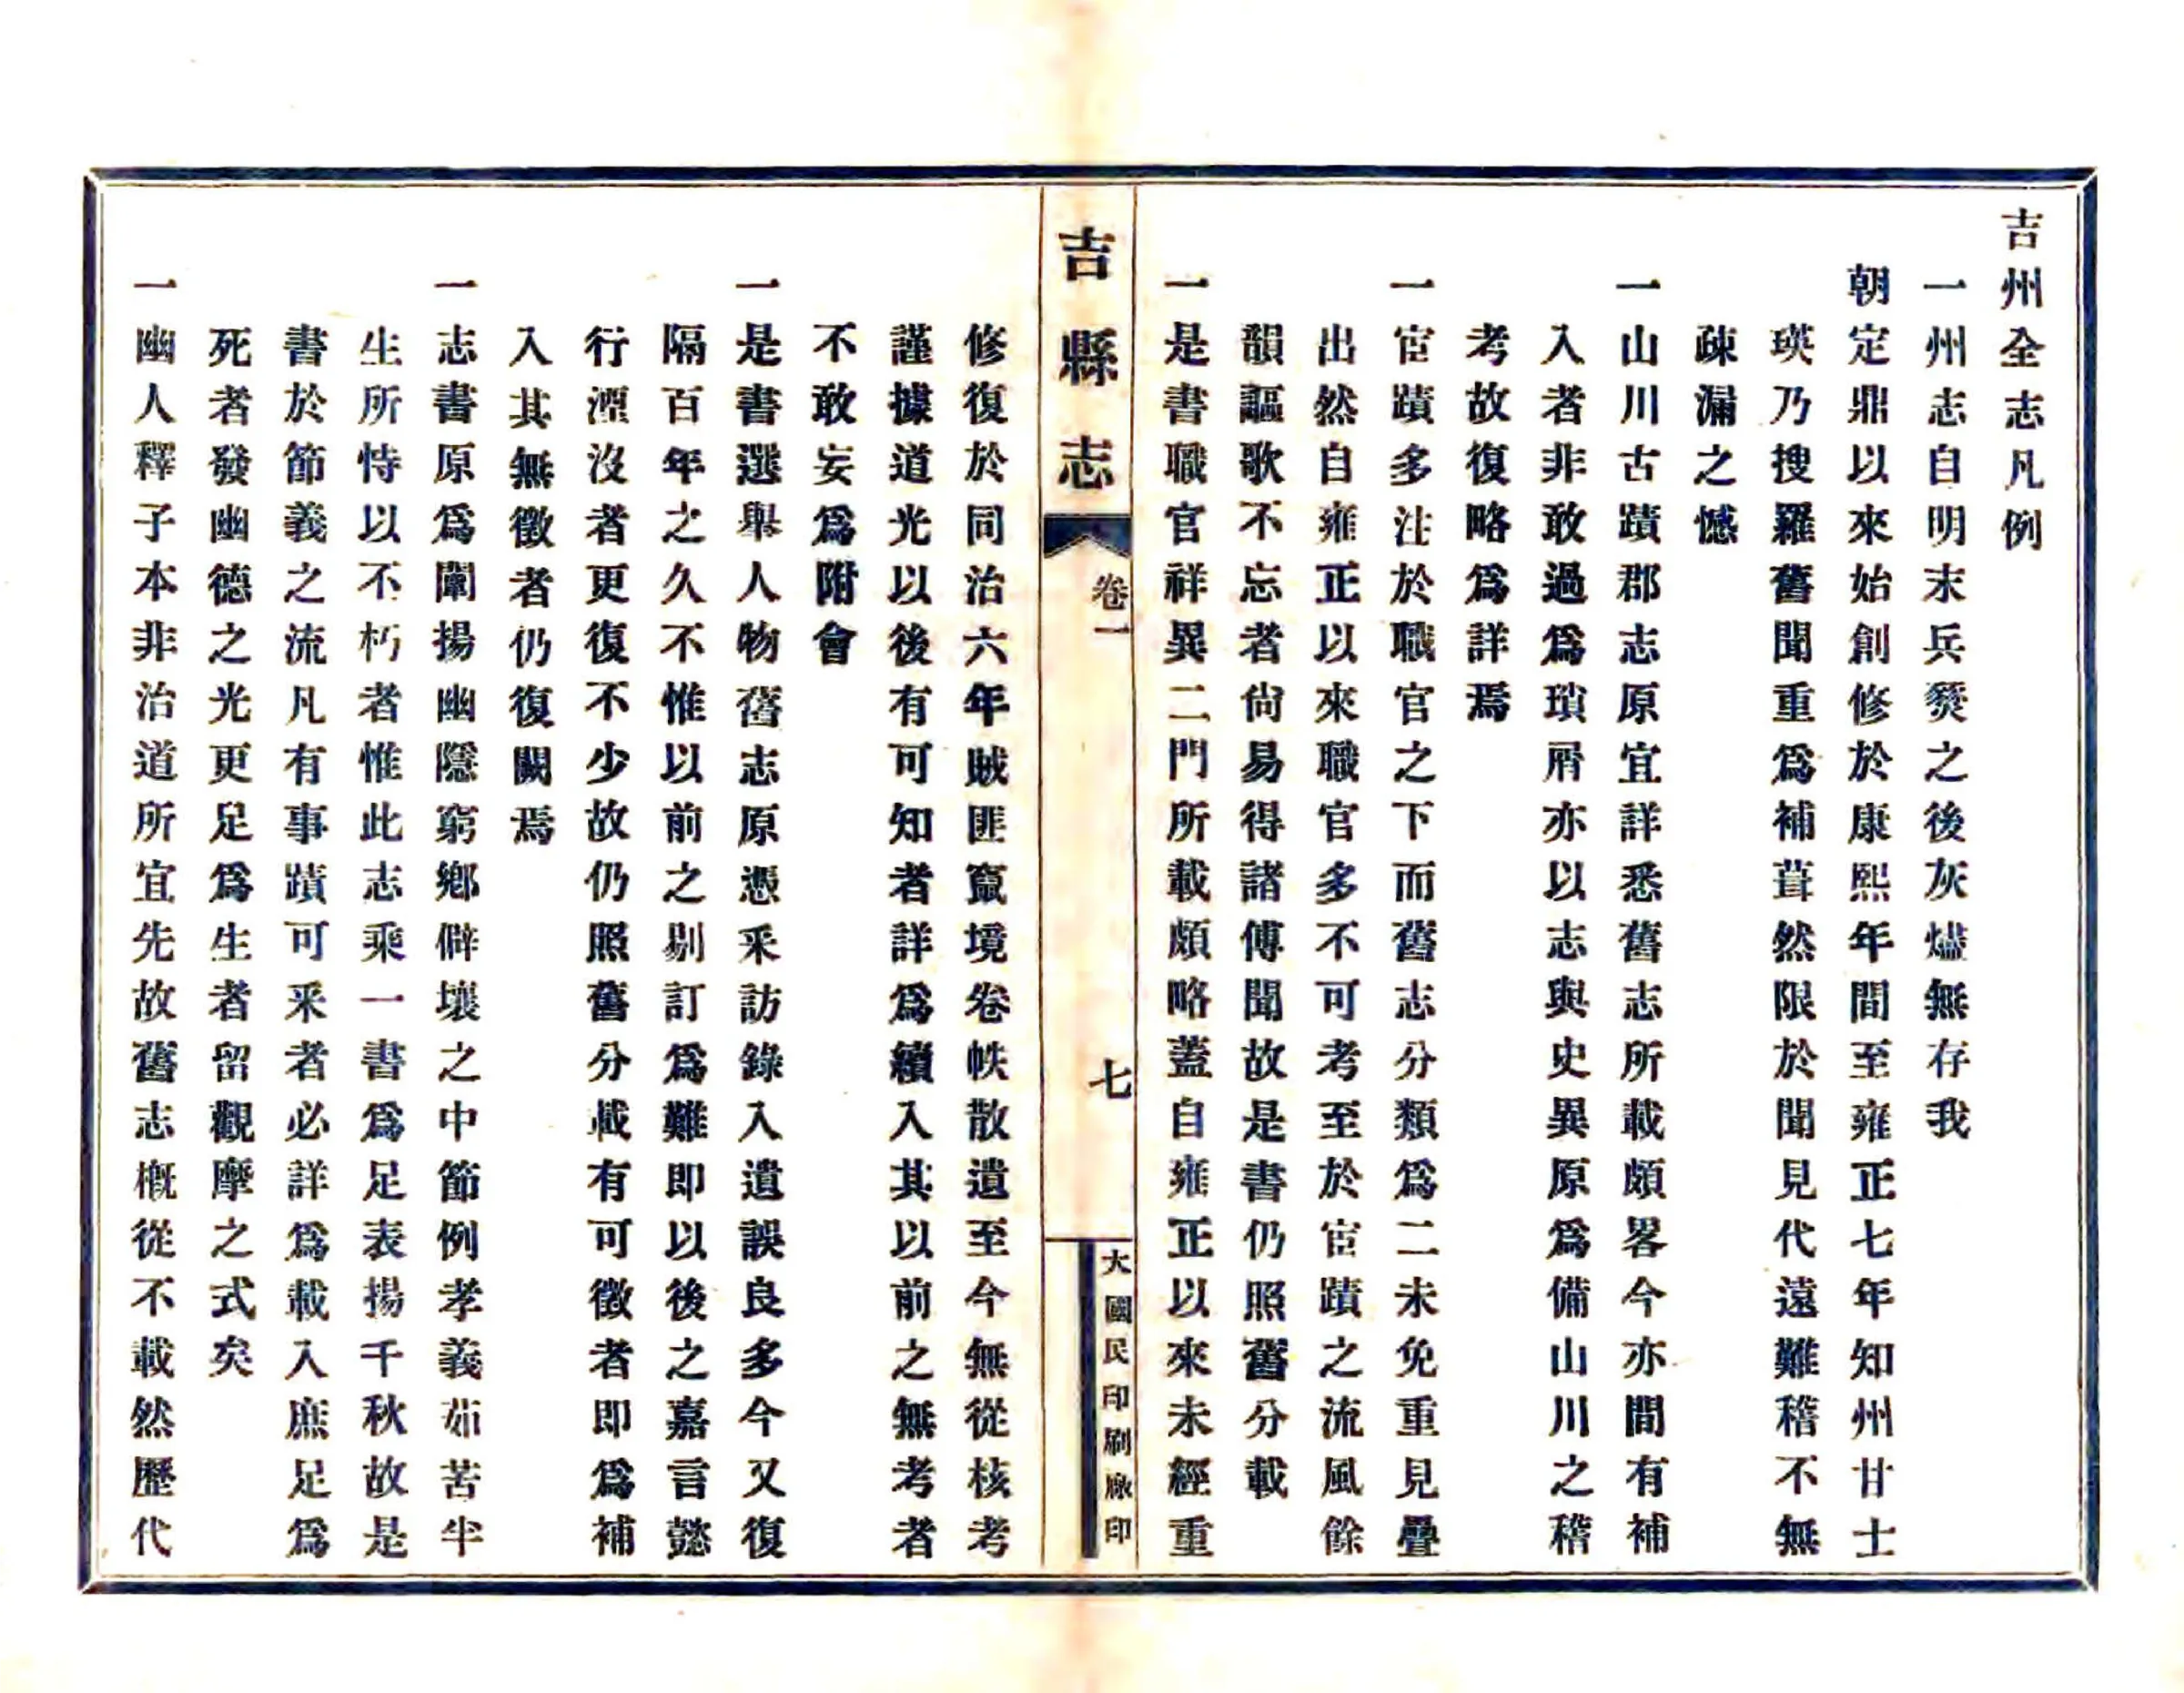 吉州全志凡例
一州志自明末兵燹之後灰燼無存我
朝定鼎以來始創修於康熙年間至雍正七年知州甘士
瑛乃搜羅舊聞重爲補葺然限於聞見代遠難稽不無
疎漏之憾
一山川古蹟郡志原宜詳悉舊志所載頗畧今亦間有補
入者非敢過爲瑣屑亦以志與史異原爲備山川之稽
考故復略爲詳焉
一宦蹟多注於職官之下而舊志分類爲二未免重見疊
出然自雍正以來職官多不可考至於宦蹟之流風餘
韻謳歌不忘者尙易得諸傳聞故是書仍照舊分載
一是書職官祥異二門所載頗略蓋自雍正以來未經重
吉縣志
卷一
七
大國民印刷廠印
修復於同治六年賊匪竄境卷帙散遺至今無從核考
謹據道光以後有可知者詳爲續入其以前之無考者
不敢妄爲附會
一是書選舉人物舊志原憑采訪錄入遺誤良多今又復
隔百年之久不惟以前之剔訂爲難即以後之嘉言懿
行湮沒者更復不少故仍照舊分載有可徵者即爲補
入其無徵者仍復闕焉
一志書原爲闡揚幽隱窮鄉僻壤之中節例孝義茹苦半
生所恃以不朽者惟此志乘一書爲足表揚千秋故是
書於節義之流凡有事蹟可采者必詳爲載入庶足爲
死者發幽德之光更足爲生者留觀摩之式矣
一幽人釋子本非治道所宜先故舊志槪從不載然歷代